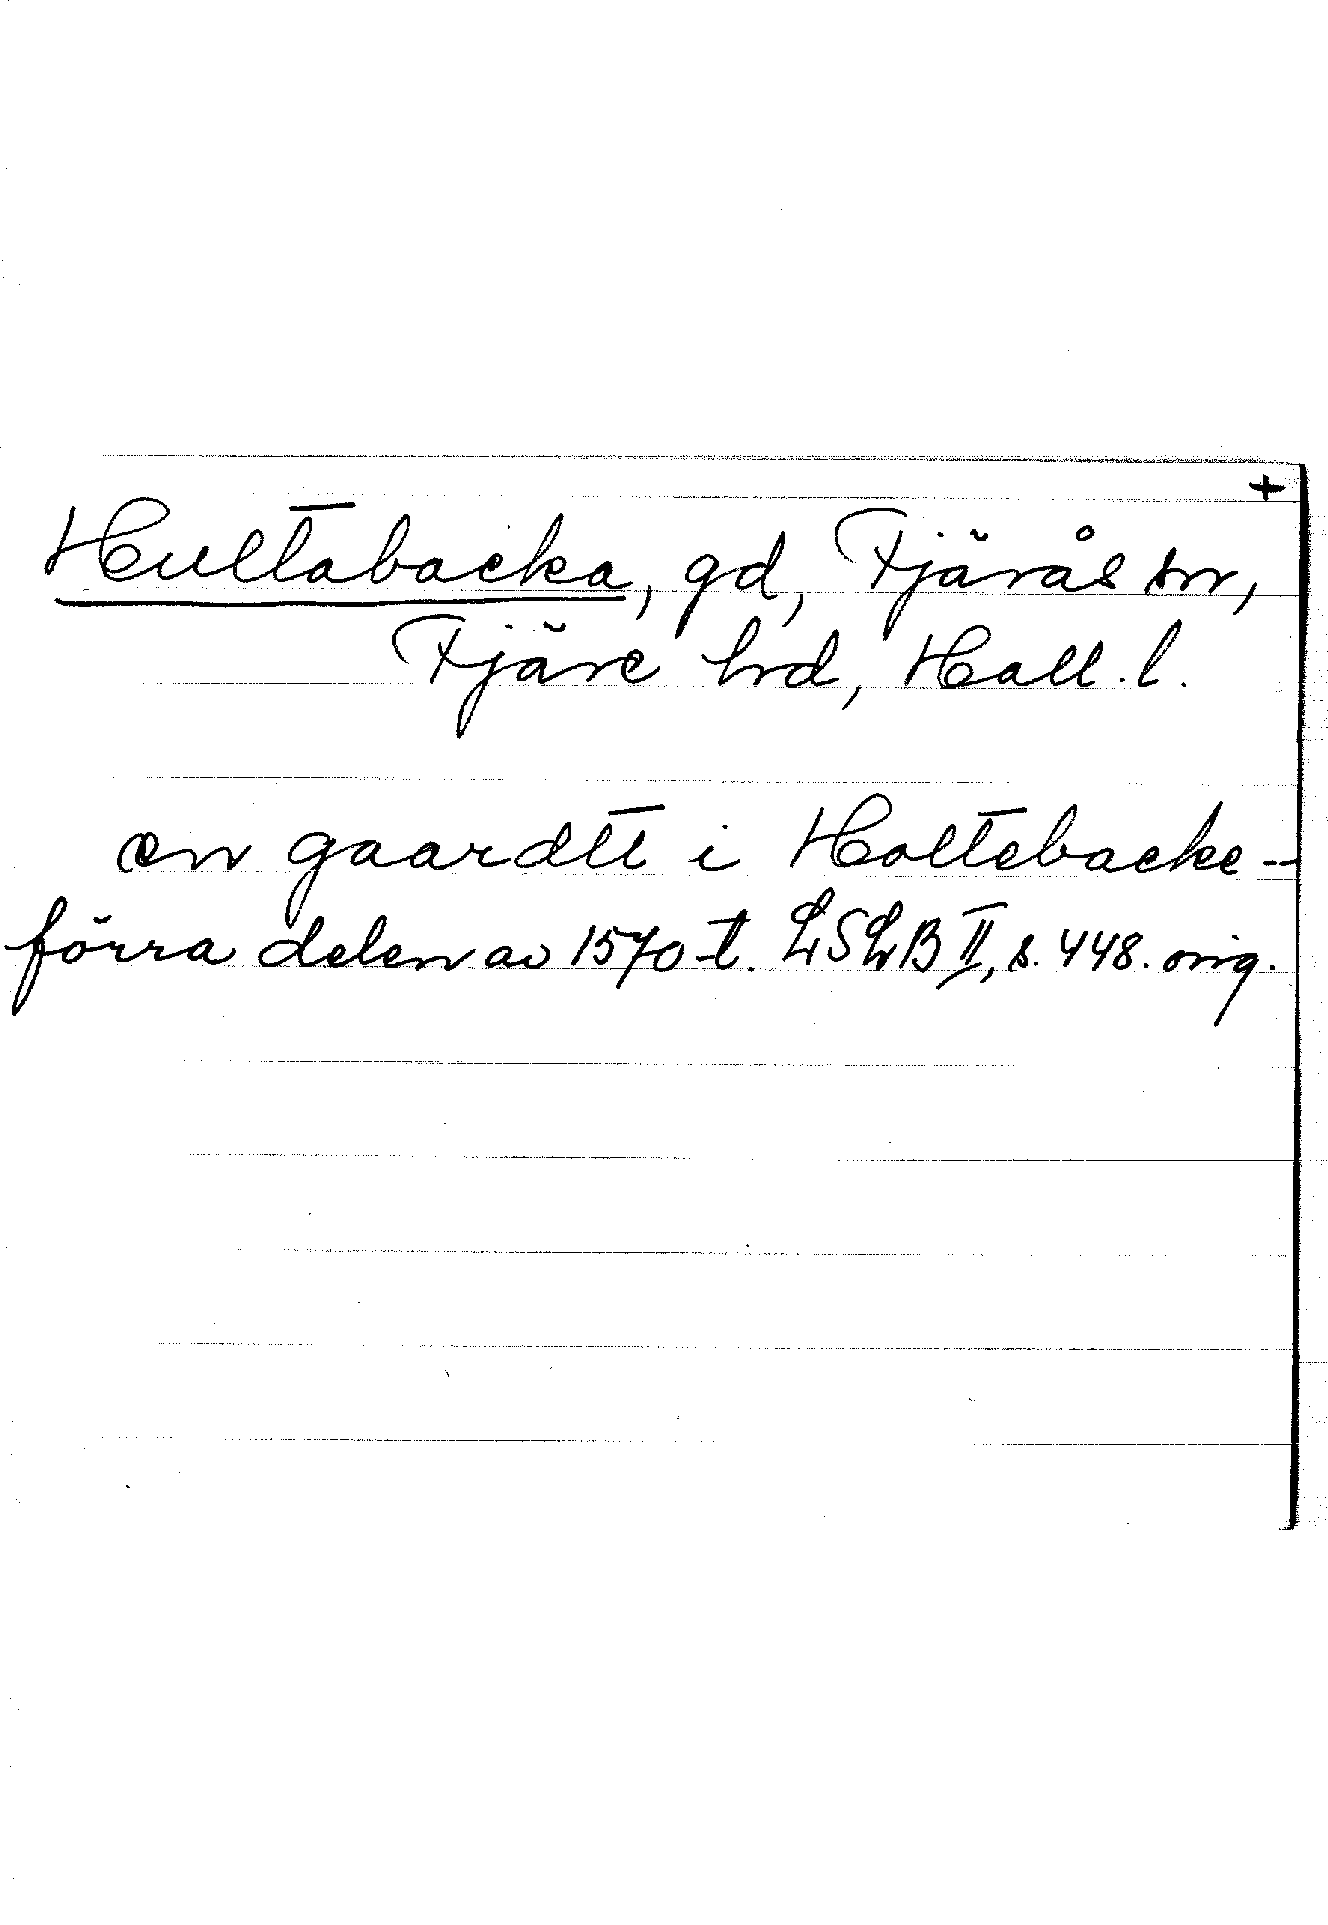 +
Hultabacka, gd, Fjärås sn,
Fjäre hd, Hall. l.
en gaardtt i Holtebacke -
förra delen av 1570-t. LSLB II, s. 448. orig.